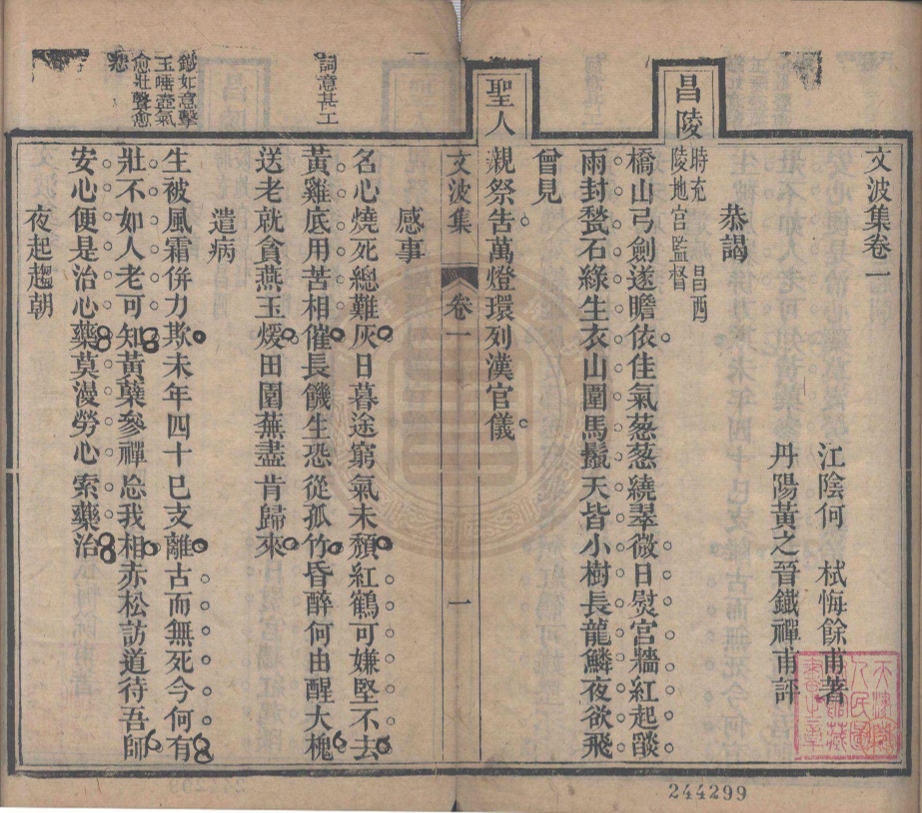 文波集卷一
江陰何 栻悔餘甫著
丹陽黃之晉鐵禪甫評
恭謁
昌陵 時充 昌西
陵地宮監督
橋山弓劍遂瞻依佳氣葱葱繞翠微日熨宮牆紅起燄
雨封甃石綠生衣山圍馬鬛天皆小樹長龍鱗夜欲飛
曾見
聖人親祭告萬燈環列漢官儀
文波集 卷一 一
感事
詞意甚工
名心燒死總難灰日暮途窮氣未頹紅鶴可嫌堅不去
黃雞底用苦相催長饑生恐從孤竹昏醉何由醒大槐
送老就貪燕玉煖田園蕪盡肯歸來
遣病
生被風霜併力欺未年四十已支離古而無死今何有
鐵如意擊
玉唾壺氣
愈壯聲愈
悲
壯不如人老可知黃蘗參禪忩我相赤松訪道待吾師
安心便是治心藥莫漫勞心索藥治
夜起趨朝
天津
人民圖
書館藏
書之章
244299